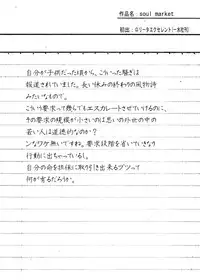 作品名: soul market
初出:
自分が子供だった頃から、こういった騒ぎは
報道されていました。長い休みの終わりの風物詩
みたいなもので。
こういう要求って幾らでもエスカレートさせていけるのに、
その要求の規模が小さいのは思いの外世の中の
若い人は道徳的なのか?
ンなワケ無いですね。要求段階を省いていきなり
行動に出ちゃっているし。
自分の命を担保に取り引き出来るブツって
何が有るだろうか。